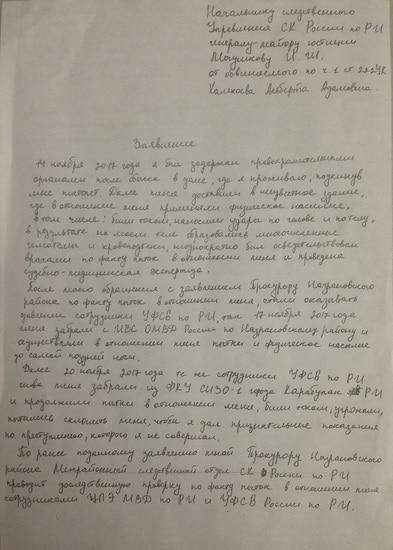 Начальнику следственного
Управления СК России по РИ
генералу-майору юстиции
И. Ш.
от обвиняемого по ч. 1 ст. 222 УК
Хамхоева Альберта Адамовича.
Заявление
11 ноября 2017 года я был задержан правоохранительными
органами после обыска в доме, где я проживал, подкинув
мне пистолет. Далее меня доставили в неизвестное здание,
где в отношении меня применяли физическое насилие,
в том числе: били током, наносили удары по голове и по телу,
в результате на моем теле образовались многочисленные
гематомы и кровоподтеки, неоднократно был освидетельствован
врачами по факту пыток в отношении меня и проведена
судебно-медицинская экспертиза.
После моего обращения с заявлением Прокурору Назрановского
района по факту пыток в отношении меня, стали оказывать
давление сотрудники УФСБ по РИ, так 17 ноября 2017 года
меня забрали с ИВС ОМВД России по Назрановскому району и
осуществляли в отношении меня пытки и физическое насилие
до самой поздней ночи.
Далее 20 ноября 2017 года те же сотрудники УФСБ по РИ
снова меня забрали из ФКУ СИЗО-1 города Карабулак РИ
и продолжили пытки в отношении меня, били током, угрожали,
пытались склонить меня, чтобы я дал признательные показания
по преступлению, которого я не совершал.
По ранее поданному заявлению мной Прокурору Назрановского
района Межрайонный следственный отдел СК России по РИ
проводит доследственную проверку по факту пыток в отношении меня
сотрудниками ЦПЭ МВД по РИ и УФСБ России по РИ.